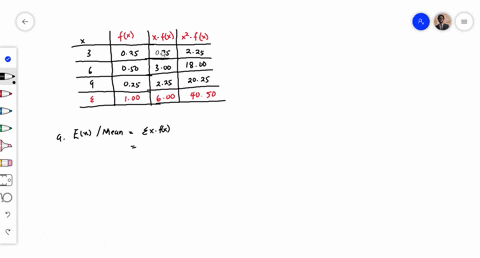 x f(x) x·f(x) x²·f(x)
3 0.25 0.75 2.25
6 0.50 3.00 18.00
9 0.25 2.25 20.25
Σ 1.00 6.00 40.50
a. E(x) / Mean = Σx·f(x)
=